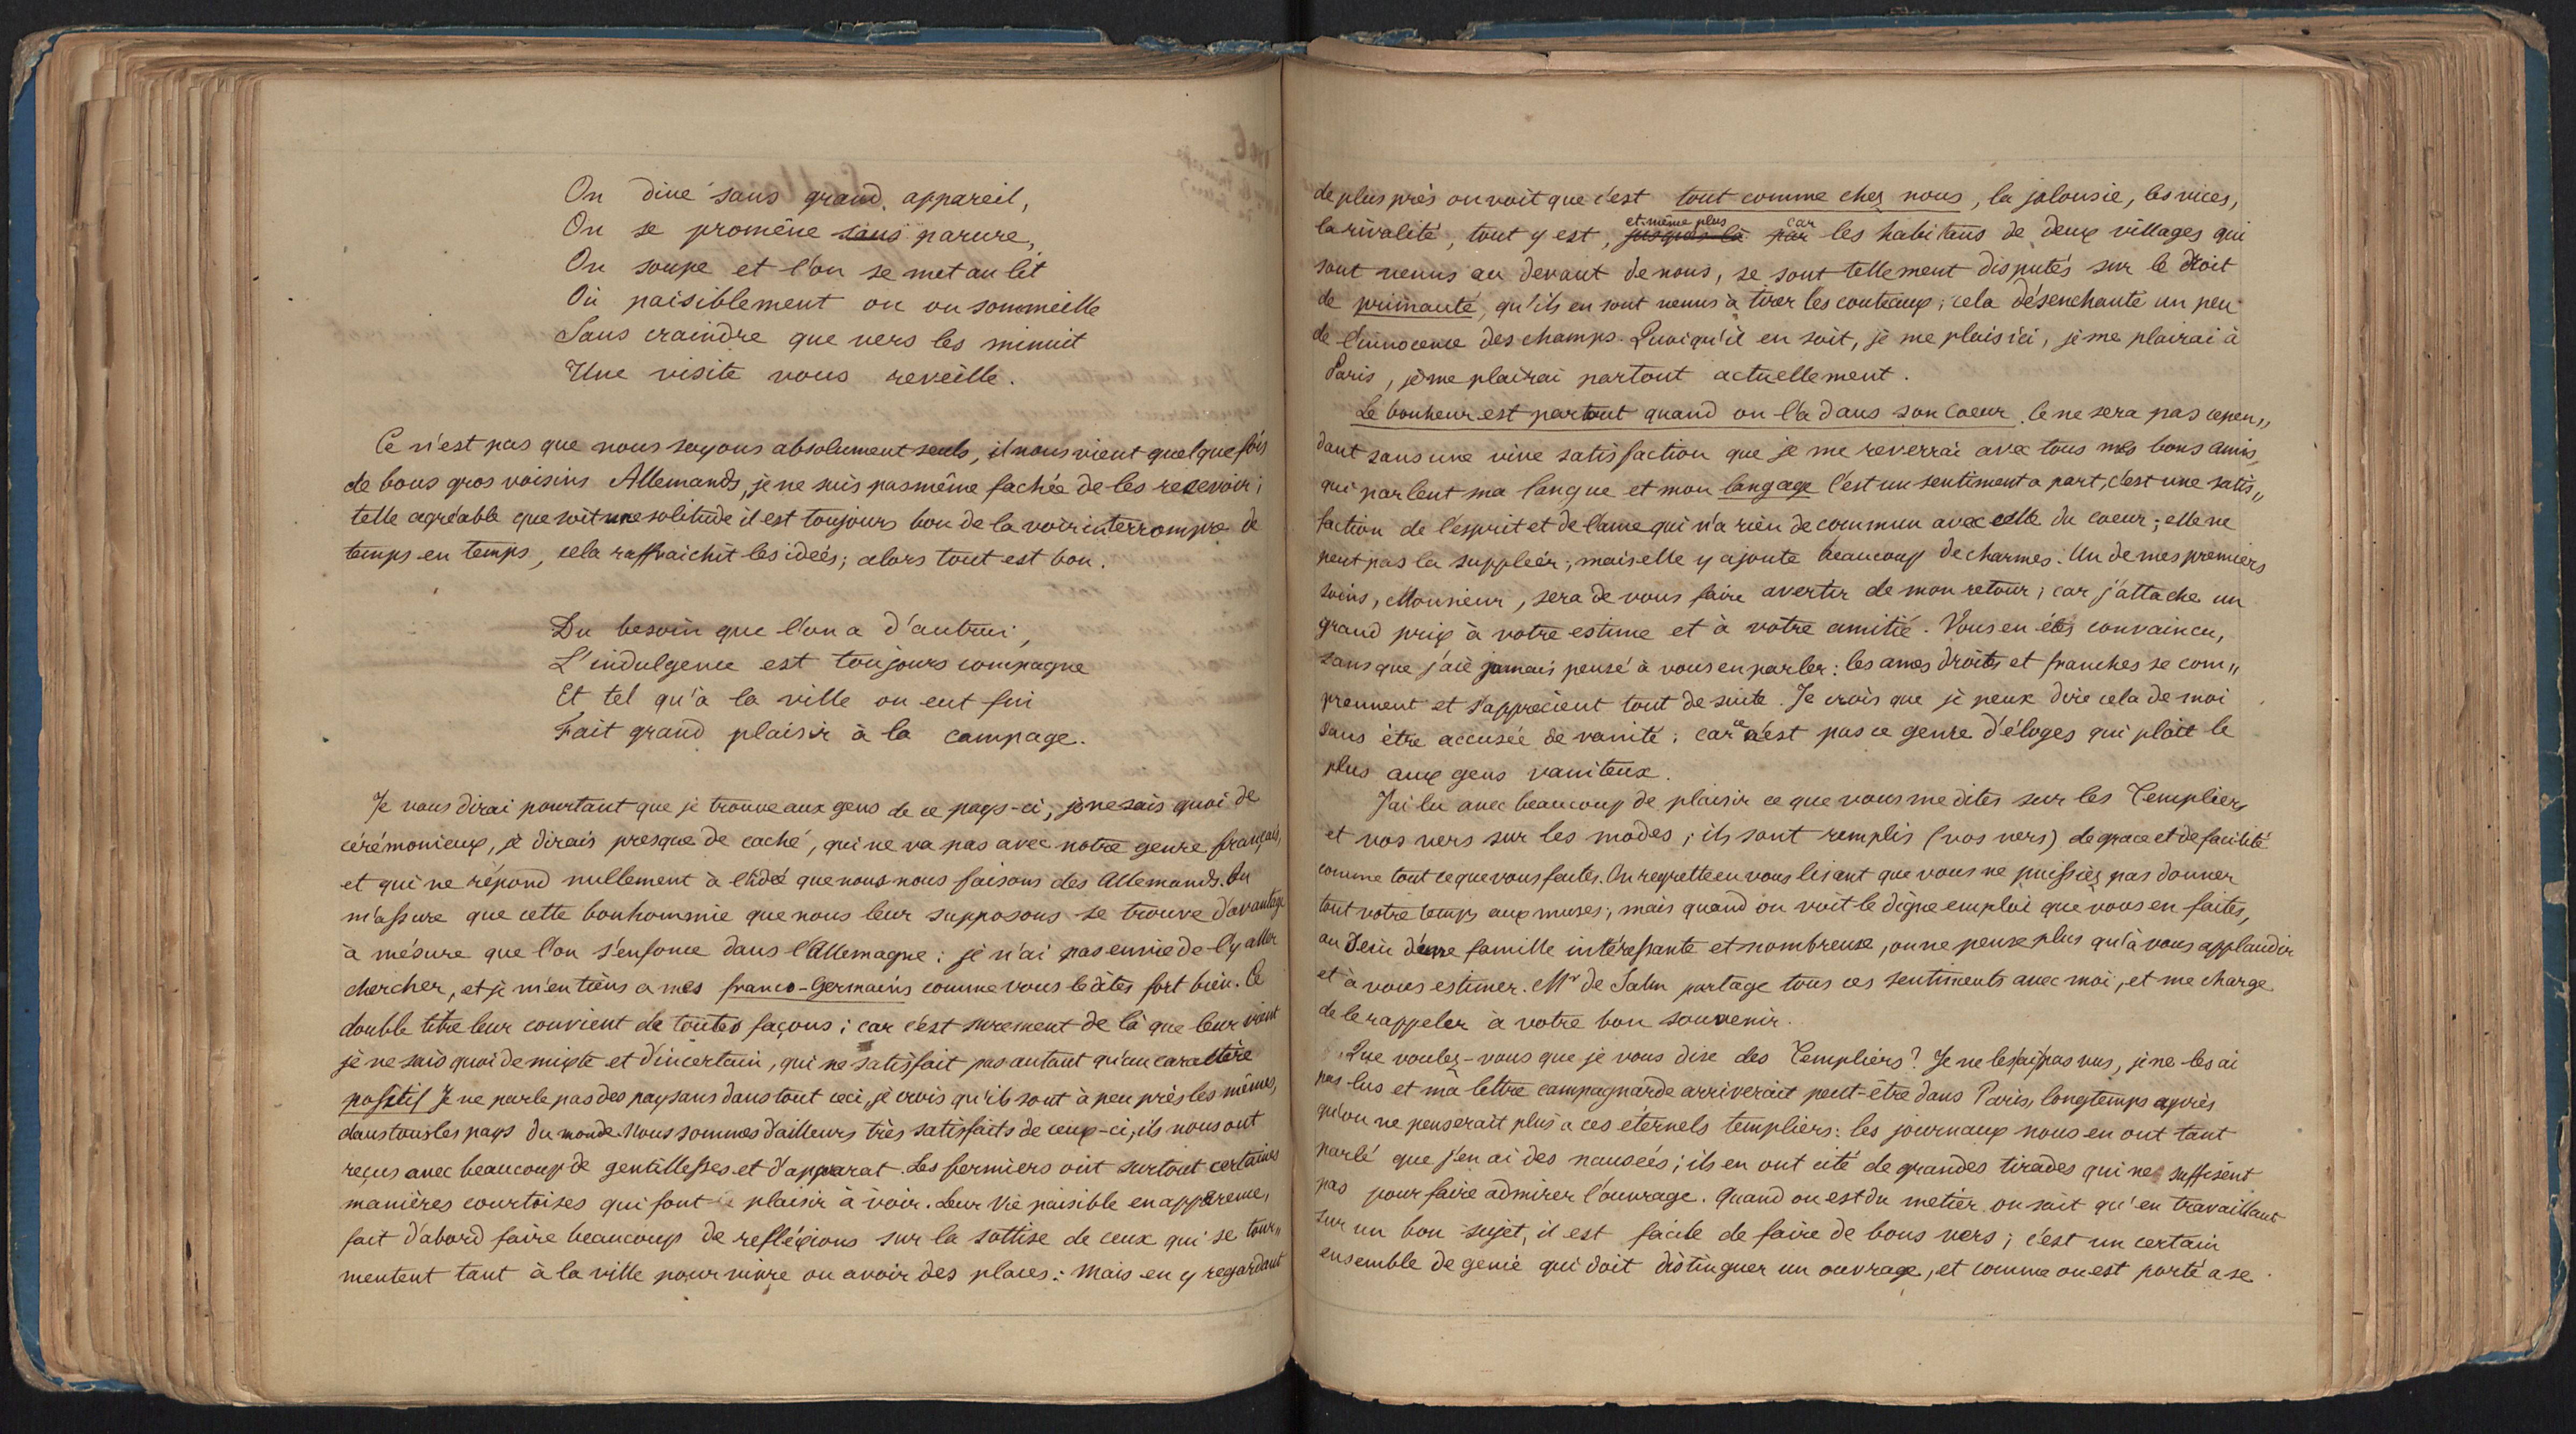 On dine sans grand appareil,
On se promène sans parure,
On soupe et l'on se met au lit
Où paisiblement on on sommeille
Sans craindre que vers les minuit
Une visite vous reveille.
Ce n'est pas que nous soyons absolument seuls, il nous vient quelque fois
de bons gros voisins Allemands, je ne suis pas même fachée de les recevoir;
telle agréable que soit une solitude il est toujours bon de la voir interrompre de
temps en temps, cela raffraichit les ideés; alors tout est bon.
Du besoin que l'on a d'autrui,
L'indulgence est toujours compagne
Et tel qu'à la ville on eut fui
Fait grand plaisir à la campage.
Je vous dirai pourtant que je trouve aux gens de ce pays-ci, je ne sais quoi de
cérémonieux, je dirais presque de caché, qui ne va pas avec notre genre français,
et qui ne répond nullement à l'idée que nous nous faisons des Allemands. On
m'assure que cette bonhommie que nous leur supposons se trouve d'avantage
à mésure que l'on s'enfonce dans l'Allemagne: je n'ai pas envie de l'y aller
chercher, et je m'en tiens a mes franco-Germains comme vous le dites fort bien. Ce
double titre leur convient de toutes façons; car c'est surement de là que leur vient
je ne sais quoi de mixte et d'incertain, qui ne satisfait pas autant qu'un caractère
positif Je ne parle pas des paysans dans tout ceci, je crois qu'ils sont à peu près les mêmes,
dans tous les pays du monde. Nous sommes d'ailleurs très satisfaits de ceux-ci, ils nous ont
reçus avec beaucoup de gentillesses et d'apparat. Les fermiers ont surtout certaines
manières courtoises qui font plaisir à voir. Leur vie paisible en apparence,
fait d'abord faire beaucoup de refléxions sur la sottise de ceux qui se tour„
mentent tant à la ville pour vivre ou avoir des places: Mais en y regardant
de plus près on voit que c'est tout comme chez nous, la jalousie, les vices,
et même plus car
la rivalité, tout y est, jusques là par les habitans de deux villages qui
sont venus au devant de nous, se sont tellement disputés sur le droit
de primauté, qu'ils en sont venus à tirer les couteaux; cela désenchante un peu
de l'innocence des champs. Quoiqu'il en soit, je me plais ici, je me plairai à
Paris, je me plairai partout actuellement.
Le bonheur est partout quand on l'a dans son coeur. Ce ne sera pas cepen„
dant sans une vive satisfaction que je me reverrai avec tous mes bons amis,
qui parlent ma langue et mon langage c'est un sentiment a part, c'est une satis„
faction de l'esprit et de l'ame qui n'a rien de commun avec celle du coeur; elle ne
peut pas la suppléér; mais elle y ajoute beaucoup de charmes. Un de mes premiers
soins, Monsieur, sera de vous faire avertir de mon retour; car j'attache un
grand prix à votre estime et à votre amitié. Vous en êtes convaincu,
sans que j'aie jamais pensé à vous en parler: les ames droites et franches se com„
prennent et s'apprécient tout de suite. Je crois que je peux dire cela de moi
sans être accusée de vanité; car ce n'est pas ce genre d'éloges qui plait le
plus aux gens vaniteux.
J'ai lu avec beaucoup de plaisir ce que vous me dites sur les Templiers
et vos vers sur les modes; ils sont remplis (vos vers) de grace et de facilité
comme tout ce que vous faites. On regrette en vous lisant que vous ne puissiez pas donner
tout votre temps aux muses; mais quand on voit le digne emploi que vous en faites,
au sein d'une famille intéressante et nombreuse, on ne pense plus qu'à vous applaudir
et à vous estimer. Mr de Salm partage tous ces sentiments avec moi, et me charge
de le rappeler à votre bon souvenir.
Que voulez-vous que je vous dise des Templiers? Je ne les ai pas vus, je ne les ai
pas lus et ma lettre campagnarde arriverait peut-être dans Paris, longtemps après
qu'on ne penserait plus a ces éternels templiers: les journaux nous en ont tant
parlé que j'en ai des nauseés; ils en ont cité de grandes tirades qui ne suffisent
pas pour faire admirer l'ouvrage. Quand on est du metier on sait qu'en travaillant
sur un bon sujet, il est facile de faire de bons vers; c'est un certain
ensemble de genie qui doit distinguer un ouvrage, et comme on est porté a se